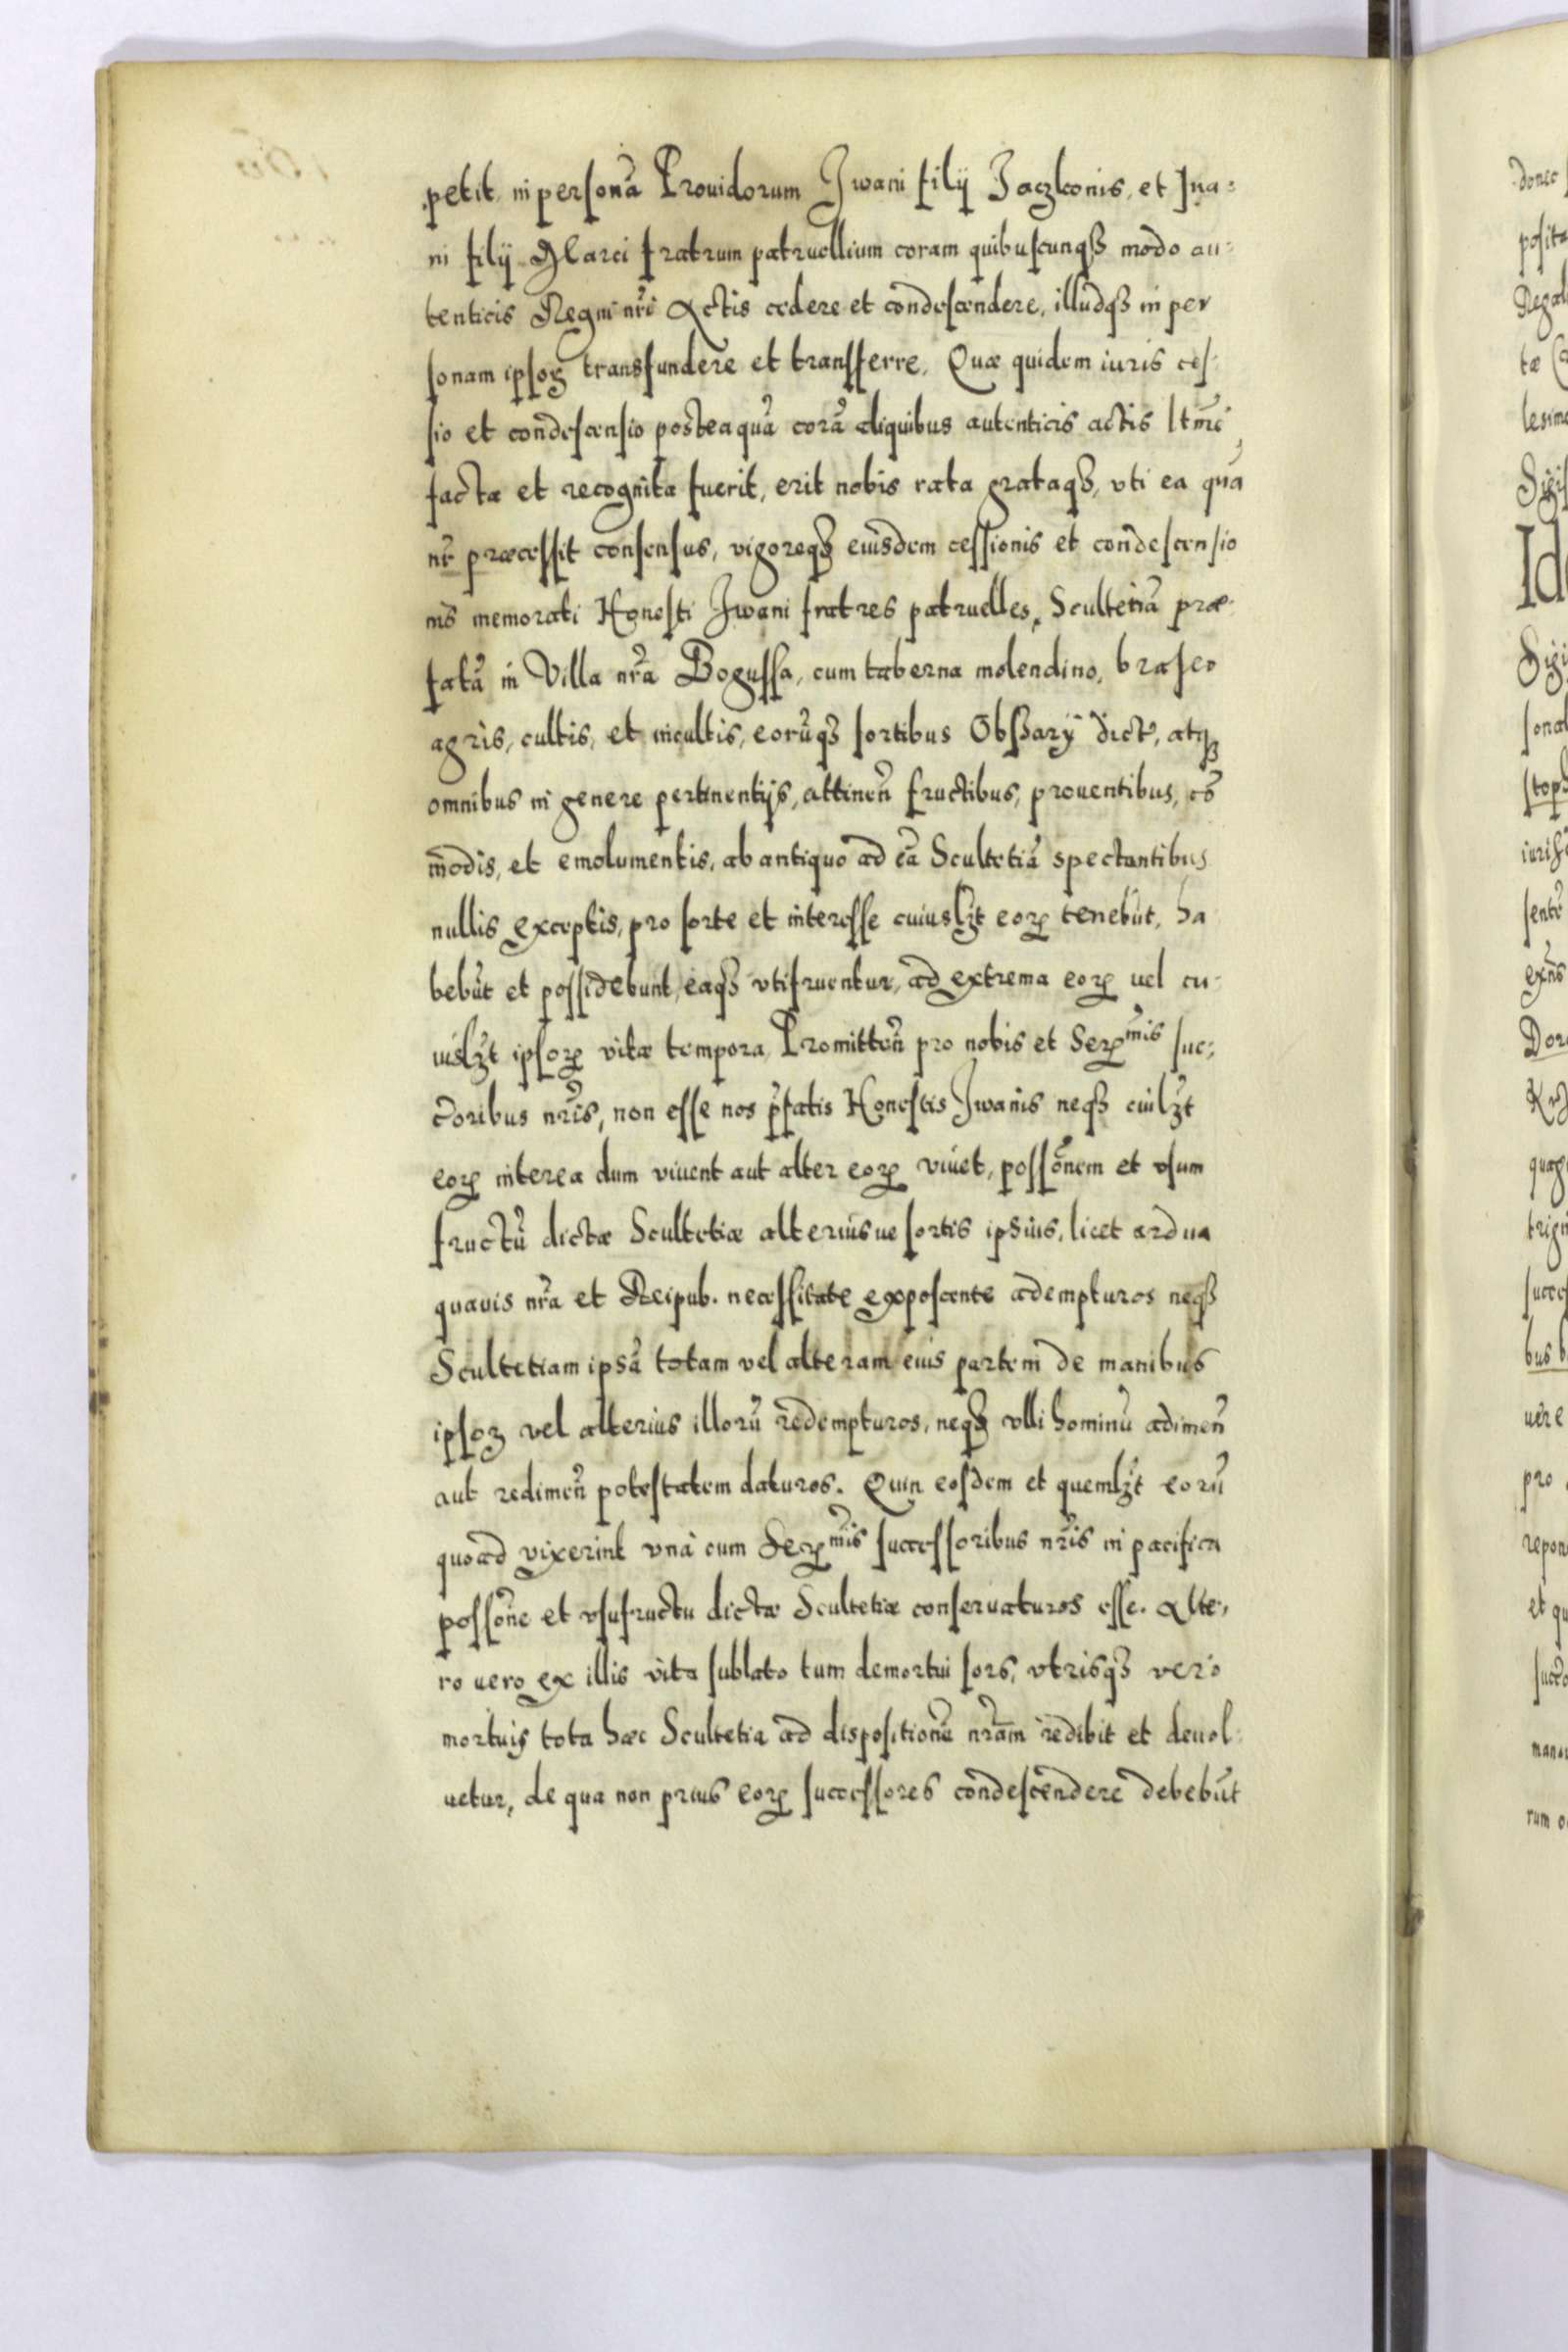 petit, in personā Prouidorum Iwani filij Iaczkonis, et Iua-
ni filij Marci fratrum patruellium coram quibuscunqꝫ modo au-
tenticis Regni nr̄i Actis cedere et condescendere, illudqꝫ in per
sonam ipsoꝝ transfundere et transferre, Quæ quidem iuris ces-
sio et condescensio posteaquā corā aliquibus autenticis actis ltm̄e
facta et recognita fuerit, erit nobis rata grataqꝫ, vti ea quā
nr̄ præcessit consensus, vigoreqꝫ eiusdem cessionis et condescensio
nis memorati Honesti Iwani fratres patruelles, Scultetiā præ-
fatā in Villa nr̄a Bogussa, cum taberna molendino, braseo
agris, cultis, et incultis, eorūqꝫ sortibus Obszary dict̄, atqꝫ
omnibus in genere pertinentijs, attinen̄ fructibus, prouentibus, cō
modis, et emolumentis, ab antiquo ad eā Scultetiā spectantibus
nullis exceptis, pro sorte et interesse cuiuslꝫt eoꝝ tenebūt, ha
bebūt et possidebunt, eaqꝫ vtifruentur, ad extrema eoꝝ uel cu-
iuslꝫt ipsoꝝ vitæ tempora, Promitten̄ pro nobis et Serꝫmis suc-
c̄oribus nr̄is, non esse nos p̄fatis Honestis Iwanis neqꝫ cuilꝫt
eoꝝ interea dum viuent aut alter eoꝝ viuet, possōnem et vsum
fructū dictæ Scultetiæ alteriusue sortis ipsius, licet ardua
quauis nr̄a et Reipub. necessitate exposcente adempturos neqꝫ
Scultetiam ipsā totam vel alteram eius partem de manibus
ipsoꝝ vel alterius illorū redempturos, neqꝫ vlli hominū adimen̄
aut redimen̄ potestatem daturos. Quin eosdem et quemlꝫt eorū
quoad vixerint vnà cum Serꝫmis successoribus nr̄is in pacifica
possōne et vsufructu dictæ Scultetiæ conseruaturos esse. Alte-
ro uero ex illis vita sublato tum demortui sors, vtrisqꝫ vero
mortuis tota hæc Scultetia ad dispositionē nr̄am redibit et deuol-
uetur, de qua non prius eoꝝ successores condescendere debebūt